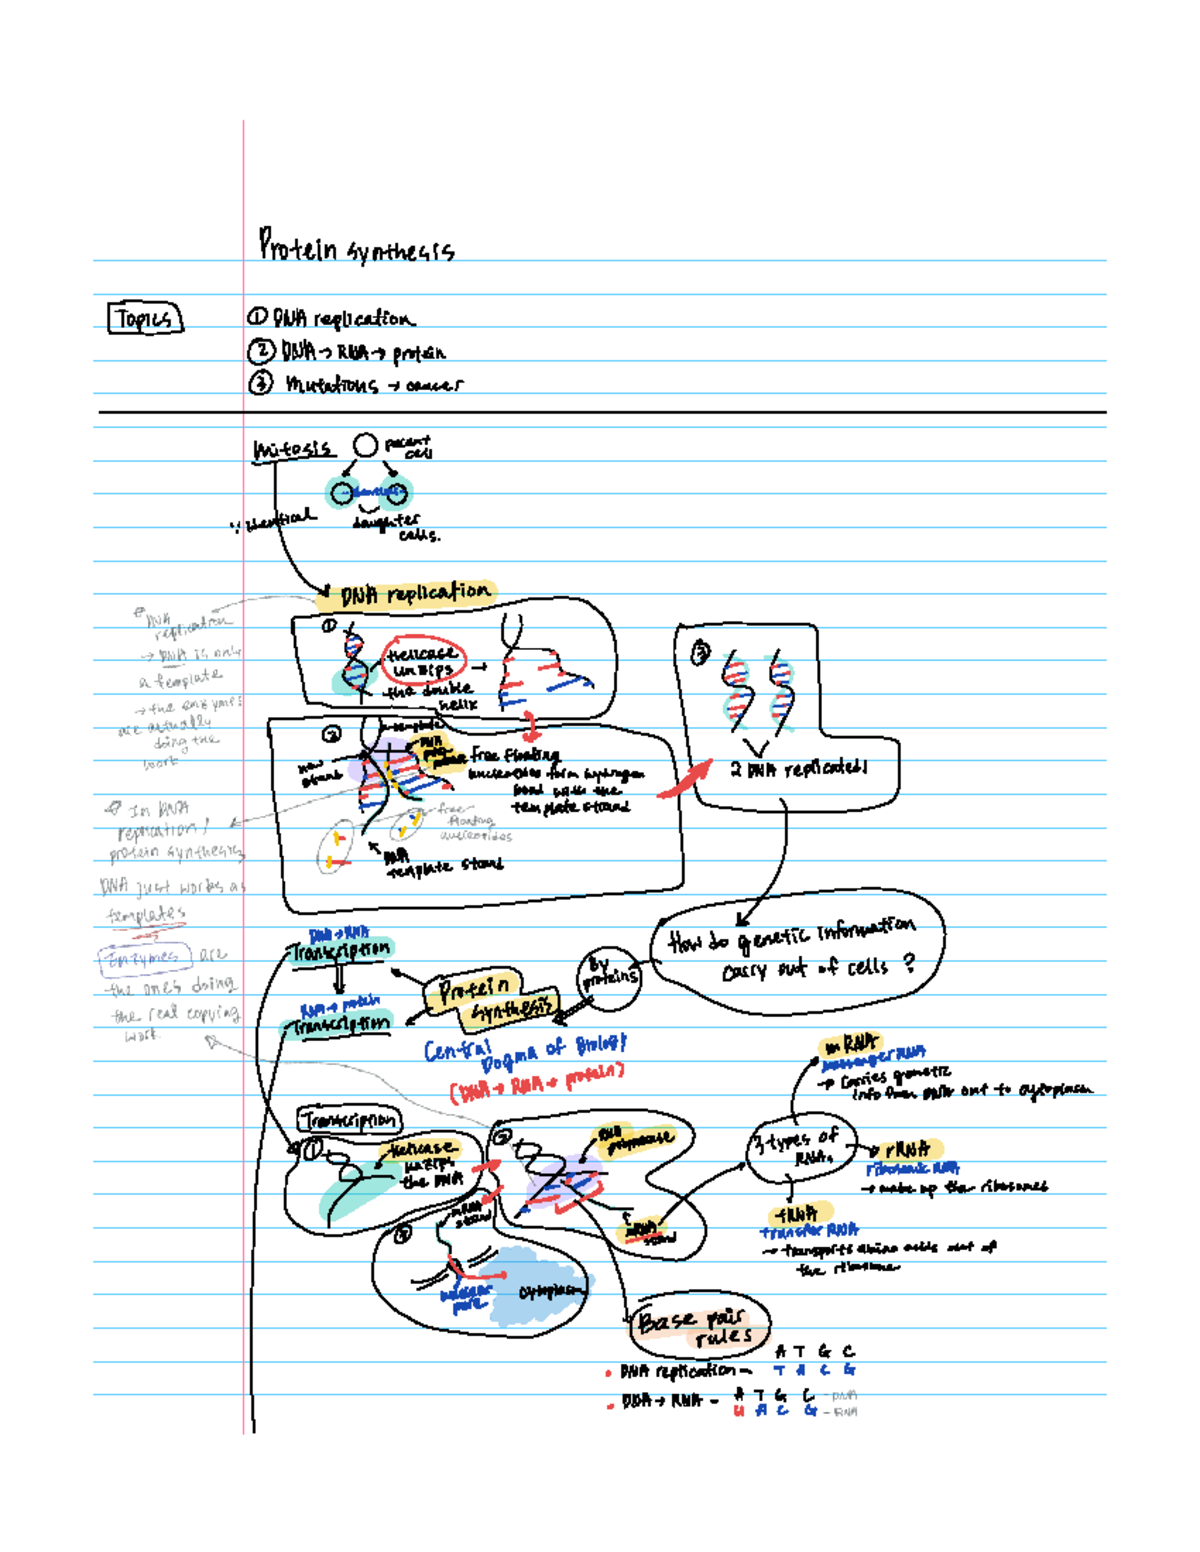 Protein synthesis
Topics
① DNA replication
② DNA → RNA → protein
③ Mutations → cancer
Mitosis
parent
cell
identical
∵ identical
daughter
cells.
DNA replication
* DNA
replication
→ DNA is only
a template
→ the enzymes
are actually
doing the
work
①
Helicase
unzips
the double
helix
→
②
new
strand
template
DNA
free floating
nucleotides form hydrogen
bond with the
template strand
free
floating
nucleotides
DNA
template strand
③
2 DNA replicated!
In DNA
replication/
protein synthesis
DNA just works as
templates
Enzymes are
the ones doing
the real copying
work.
How do genetic information
carry out of cells?
By
proteins
Protein
synthesis
DNA → RNA
Transcription
RNA → protein
Transcription
Central
Dogma of Biology
(DNA → RNA → protein)
Transcription
①
Helicase
unzips
the DNA
②
RNA
polymerase
mRNA
strand
③
mRNA
strand
nuclear
pore
cytoplasm
3 types of
RNAs
mRNA
messenger RNA
→ carries genetic
info from DNA out to cytoplasm
rRNA
ribosomic RNA
→ make up the ribosomes
tRNA
transfer RNA
→ transports amino acids out of
the ribosome
Base pair
rules
• DNA replication – A T G C
T A C G
• DNA → RNA – A T G C – DNA
U A C G – RNA